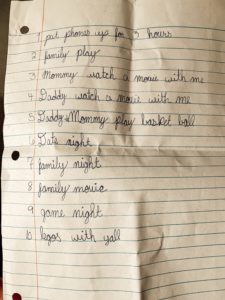 1 put phones up for 3 hours
2 family play
3 Mommy watch a movie with me
4 Daddy watch a movie with me
5 Daddy & Mommy play basket ball
6 Date night
7 family night
8 family movie
9 game night
10 legos with yall